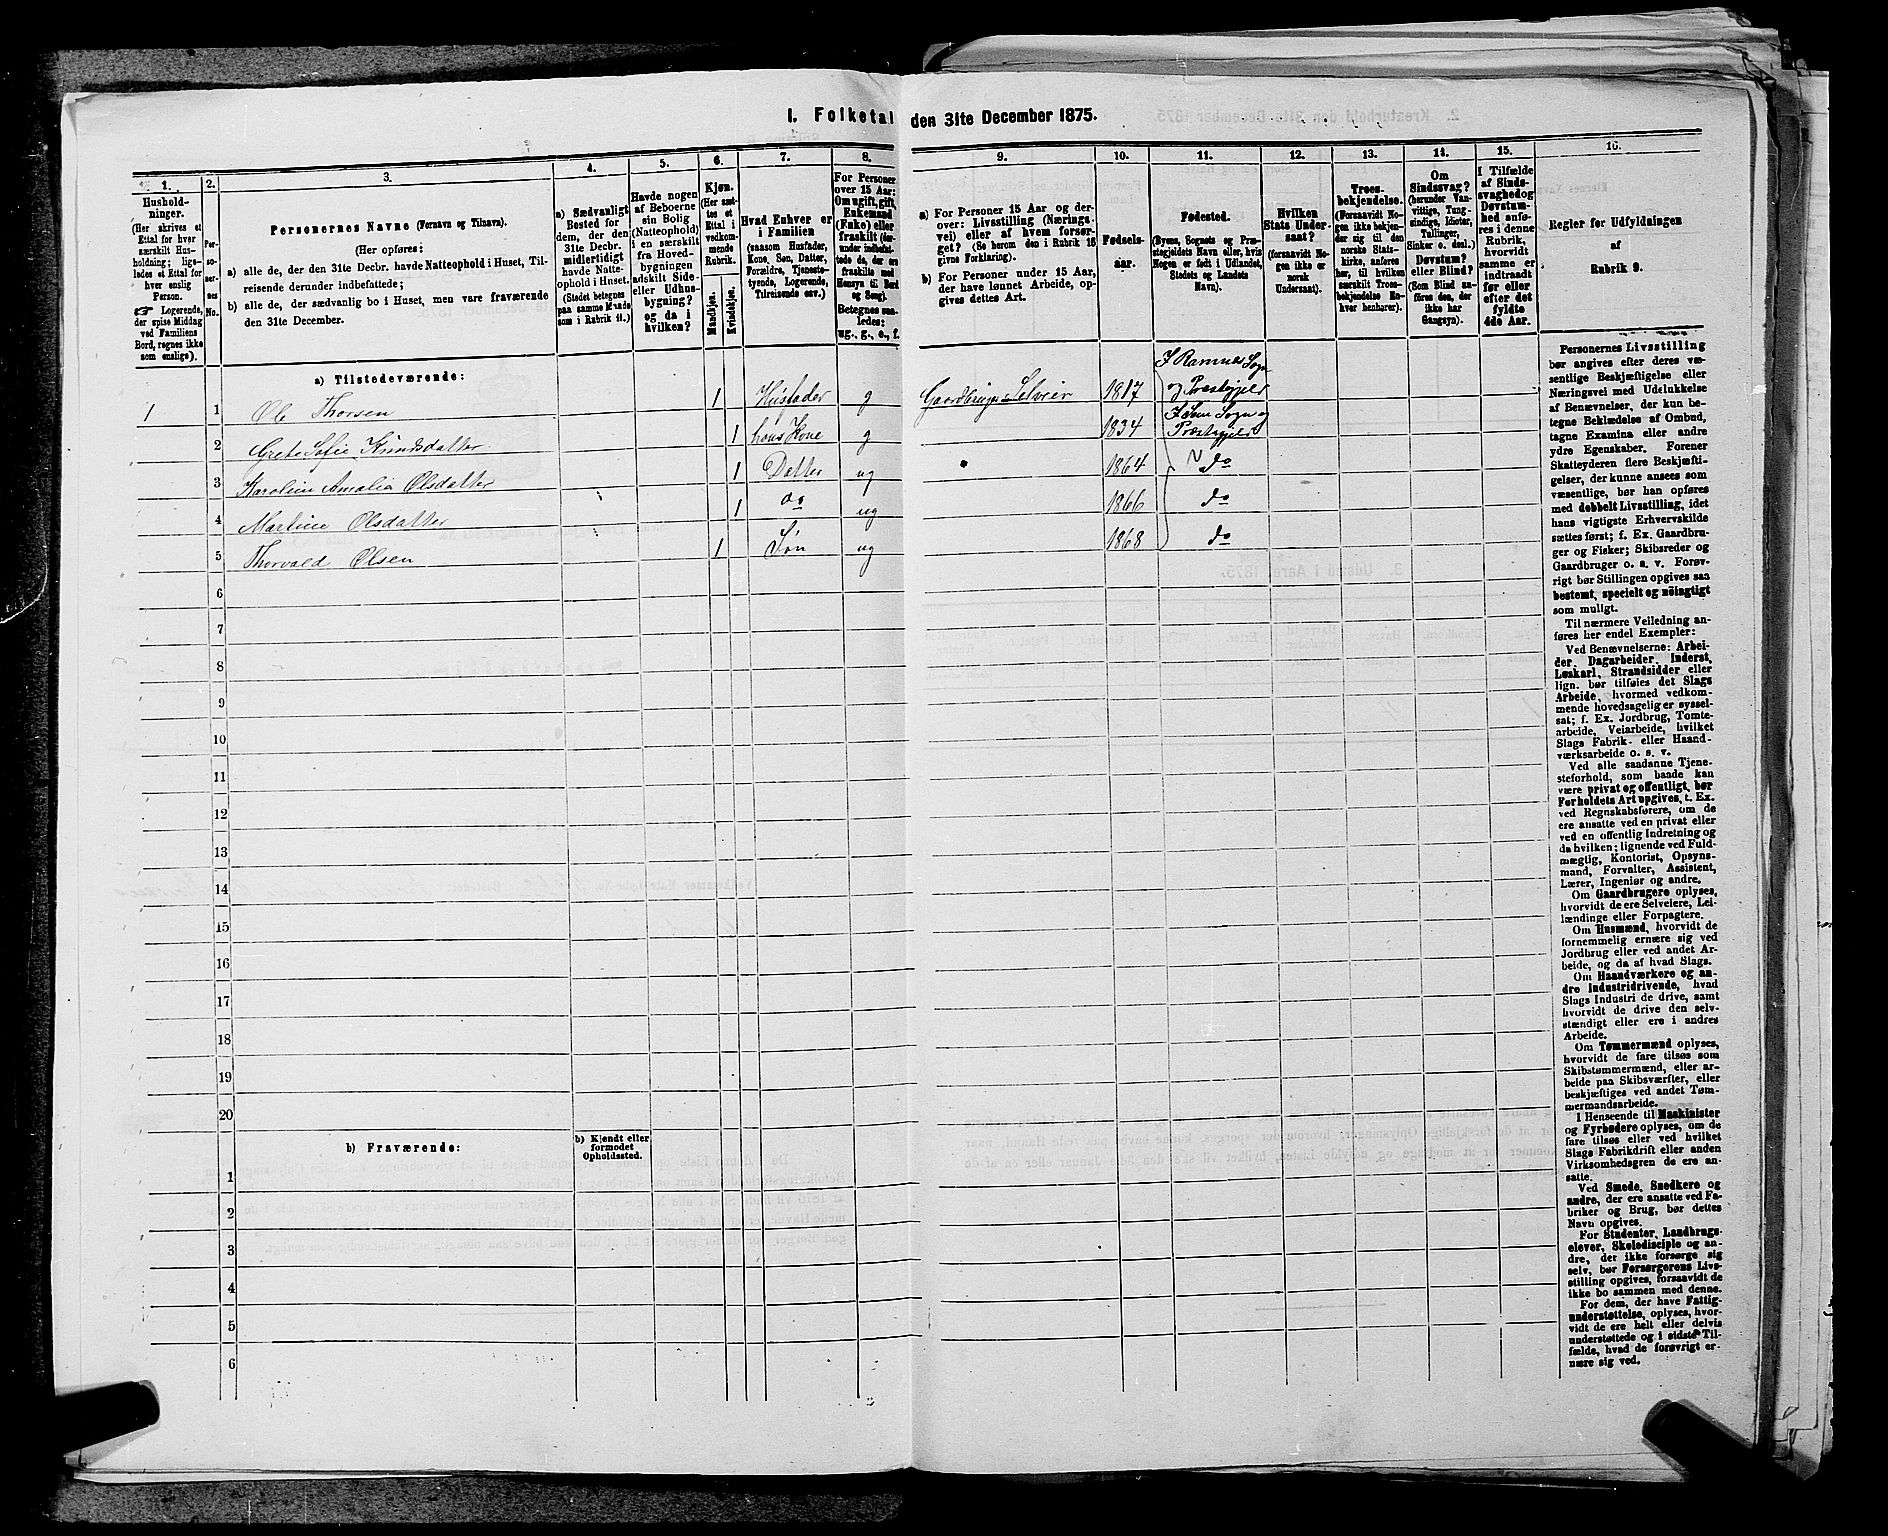 I. Folketal den 31te December 1875.
1. 2. 3. 4. 5. 6. 7. 8. 9. 10. 11. 12. 13. 14. 15. 16.
Husholdninger.
(Her skrives et
Ettal for hver
særskilt Husholdning;
ligeledes et Ettal for
hver enslig
Person.
☞ Logerende,
der spise Middag
ved Familiens
Bord, regnes ikke
som enslige).
Personernes No.
Personernes Navne (Fornavn og Tilnavn).
(Her opføres:
a) alle de, der den 31te Decbr. havde Natteophold i Huset, Tilreisende derunder indbefattede;
b) alle de, der sædvanlig bo i Huset, men vare fraværende
den 31te December.
a) Sædvanligt
Bosted for
dem, der den
31te Decbr.
midlertidigt
havde Natteophold i Huset.
(Stedet betegnes
paa samme Maade
som i Rubrik 11.)
Havde nogen
af Beboerne
sin Bolig
(Natteophold)
i en særskilt
fra Hovedbygningen
adskilt Side-
eller Udhusbygning?
og da i
hvilken?
Kjøn.
(Her sættes et
Ettal i
vedkommende
Rubrik.
Mandkjøn.
Kvindekjøn.
Hvad Enhver er
i Familien
(saasom Husfader,
Kone, Søn, Datter,
Forældre, Tjenestetyende, Logerende,
Tilreisende osv.)
For Personer
over 15 Aar:
Om ugift, gift,
Enkemand
(Enke) eller
fraskilt
Betegnes saaledes:
ug., g., e., f.
a) For Personer 15 Aar og derover: Livsstilling (Næringsvei) eller af hvem forsørget? (Se herom den i Rubrik 16
givne Forklaring).
b) For Personer under 15 Aar,
der have lønnet Arbeide, opgives dettes Art.
Fødselsaar.
Fødested.
(Byens, Sognets og Præstegjeldets Navn eller, hvis
Nogen er født i Udlandet,
Stedets og Landets
Navn).
Hvilken
Stats Undersaat?
(forsaavidt Nogen ikke er
norsk
Undersaat).
Troesbekjendelse.
(Forsaavidt Nogen ikke bekjender sig til den
norske Statskirke, anføres
her, til hvilken
særskilt Troesbekjendelse Enhver henhører).
Om
Sindssvag?
(herunder Vanvittige, Tungsindige, Idioter,
Tullinger,
Sinker o. desl.)
Døvstum?
eller Blind?
(Som Blind anføres den, der
ikke har
Gangsyn).
I Tilfælde
af Sindssvaghed og
Døvstumhed anføres i denne
Rubrik,
hvorvidt
samme er
indtraadt
før eller
efter det
fyldte
4de Aar.
Regler for Udfyldningen
af
Rubrik 9.
a) Tilstedeværende:
1 1 Ole Thorsen 1 Husfader g Gaardbruger Selveier 1817 I Ramnes Sogn og Præstegjeld
2 Grete Sofie Knudsdatter 1 hans Kone g 1834 I Sem Sogn og Præstegjeld
3 Karoline Amalia Olsdatter 1 Datter ug 1864 do
4 Martine Olsdatter 1 do ug 1866 do
5 Thorvald Olsen 1 Søn ug 1868 do
6
7
8
9
10
11
12
13
14
15
16
17
18
19
20
b) Fraværende: b) Kjendt eller
formodet
Opholdssted.
1
2
3
4
5
6
Personernes Livsstilling
bør angives efter deres væsentlige Beskjæftigelse eller
Næringsvei med Udelukkelse
af Benævnelser, der kun betegne Beklædelse af Ombud,
tagne Examina eller andre
ydre Egenskaber. Forener
Skatteyderen flere Beskjæftigelser, der kunne ansees som
væsentlige, bør han opføres
med dobbelt Livsstilling, idet
hans vigtigste Erhvervskilde
sættes først; f. Ex. Gaardbruger og Fisker; Skibsreder og
Gaardbruger o. s. v. Forøvrigt bør Stillingen opgives saa
bestemt, specielt og nöiagtigt
som muligt.
Til nærmere Veiledning anføres her endel Exempler:
Ved Benævnelserne: Arbeider, Dagarbeider, Inderst,
Løskarl, Strandsidder eller
lign. bør tilføies det Slags
Arbeide, hvormed vedkommende hovedsagelig er sysselsat; f. Ex. Jordbrug, Tomtearbeide, Veiarbeide, hvilket
Slags Fabrik- eller Haandværksarbeide o. s. v.
Ved alle saadanne Tjenesteforhold, som baade kan
være privat og offentligt, bør
Forholdets Art opgives, t. Ex.
ved Regnskabsførere, om de
ere ansatte ved en privat eller
ved en offentlig Indretning og
da hvilken; lignende ved Fuldmægtig, Kontorist, Opsynsmand, Forvalter, Assistent,
Lærer, Ingeniør og andre.
Om Gaardbrugere oplyses,
hvorvidt de ere Selveiere, Leilændinge eller Forpagtere.
Om Husmænd, hvorvidt de
fornemmelig ernære sig ved
Jordbrug eller ved andet Arbeide, og da af hvad Slags.
Om Haandværkere og andre Industridrivende, hvad
Slags Industri de drive, samt
hvorvidt de drive den selvstændigt eller ere i andres
Arbeide.
Om Tømmermænd oplyses,
hvorvidt de fare tilsøs som
Skibstømmermænd, eller arbeide paa Skibsværfter, eller
beskjæftiges ved andet Tømmermandsarbeide.
I Henseende til Maskinister
og Fyrbødere oplyses, om de
fare tilsøs eller ved hvilket
Slags Fabrikdrift eller anden
Virksomhedsgren de ere ansatte.
Ved Smede, Snedkere og
andre, der ere ansatte ved Fabriker og Brug, bør dettes
Navn opgives.
For Studenter, Landbrugselever, Skoledisciple og andre, der ikke forsørge sig
selv, bør Forsørgerens Livsstilling opgives, forsaavidt de
ikke bo sammen med denne.
For dem, der have Fattigunderstøttelse, oplyses, hvorvidt de ere helt eller delvis
understøttede og i sidste Tilfælde, hvad de forøvrigt ernære sig ved.